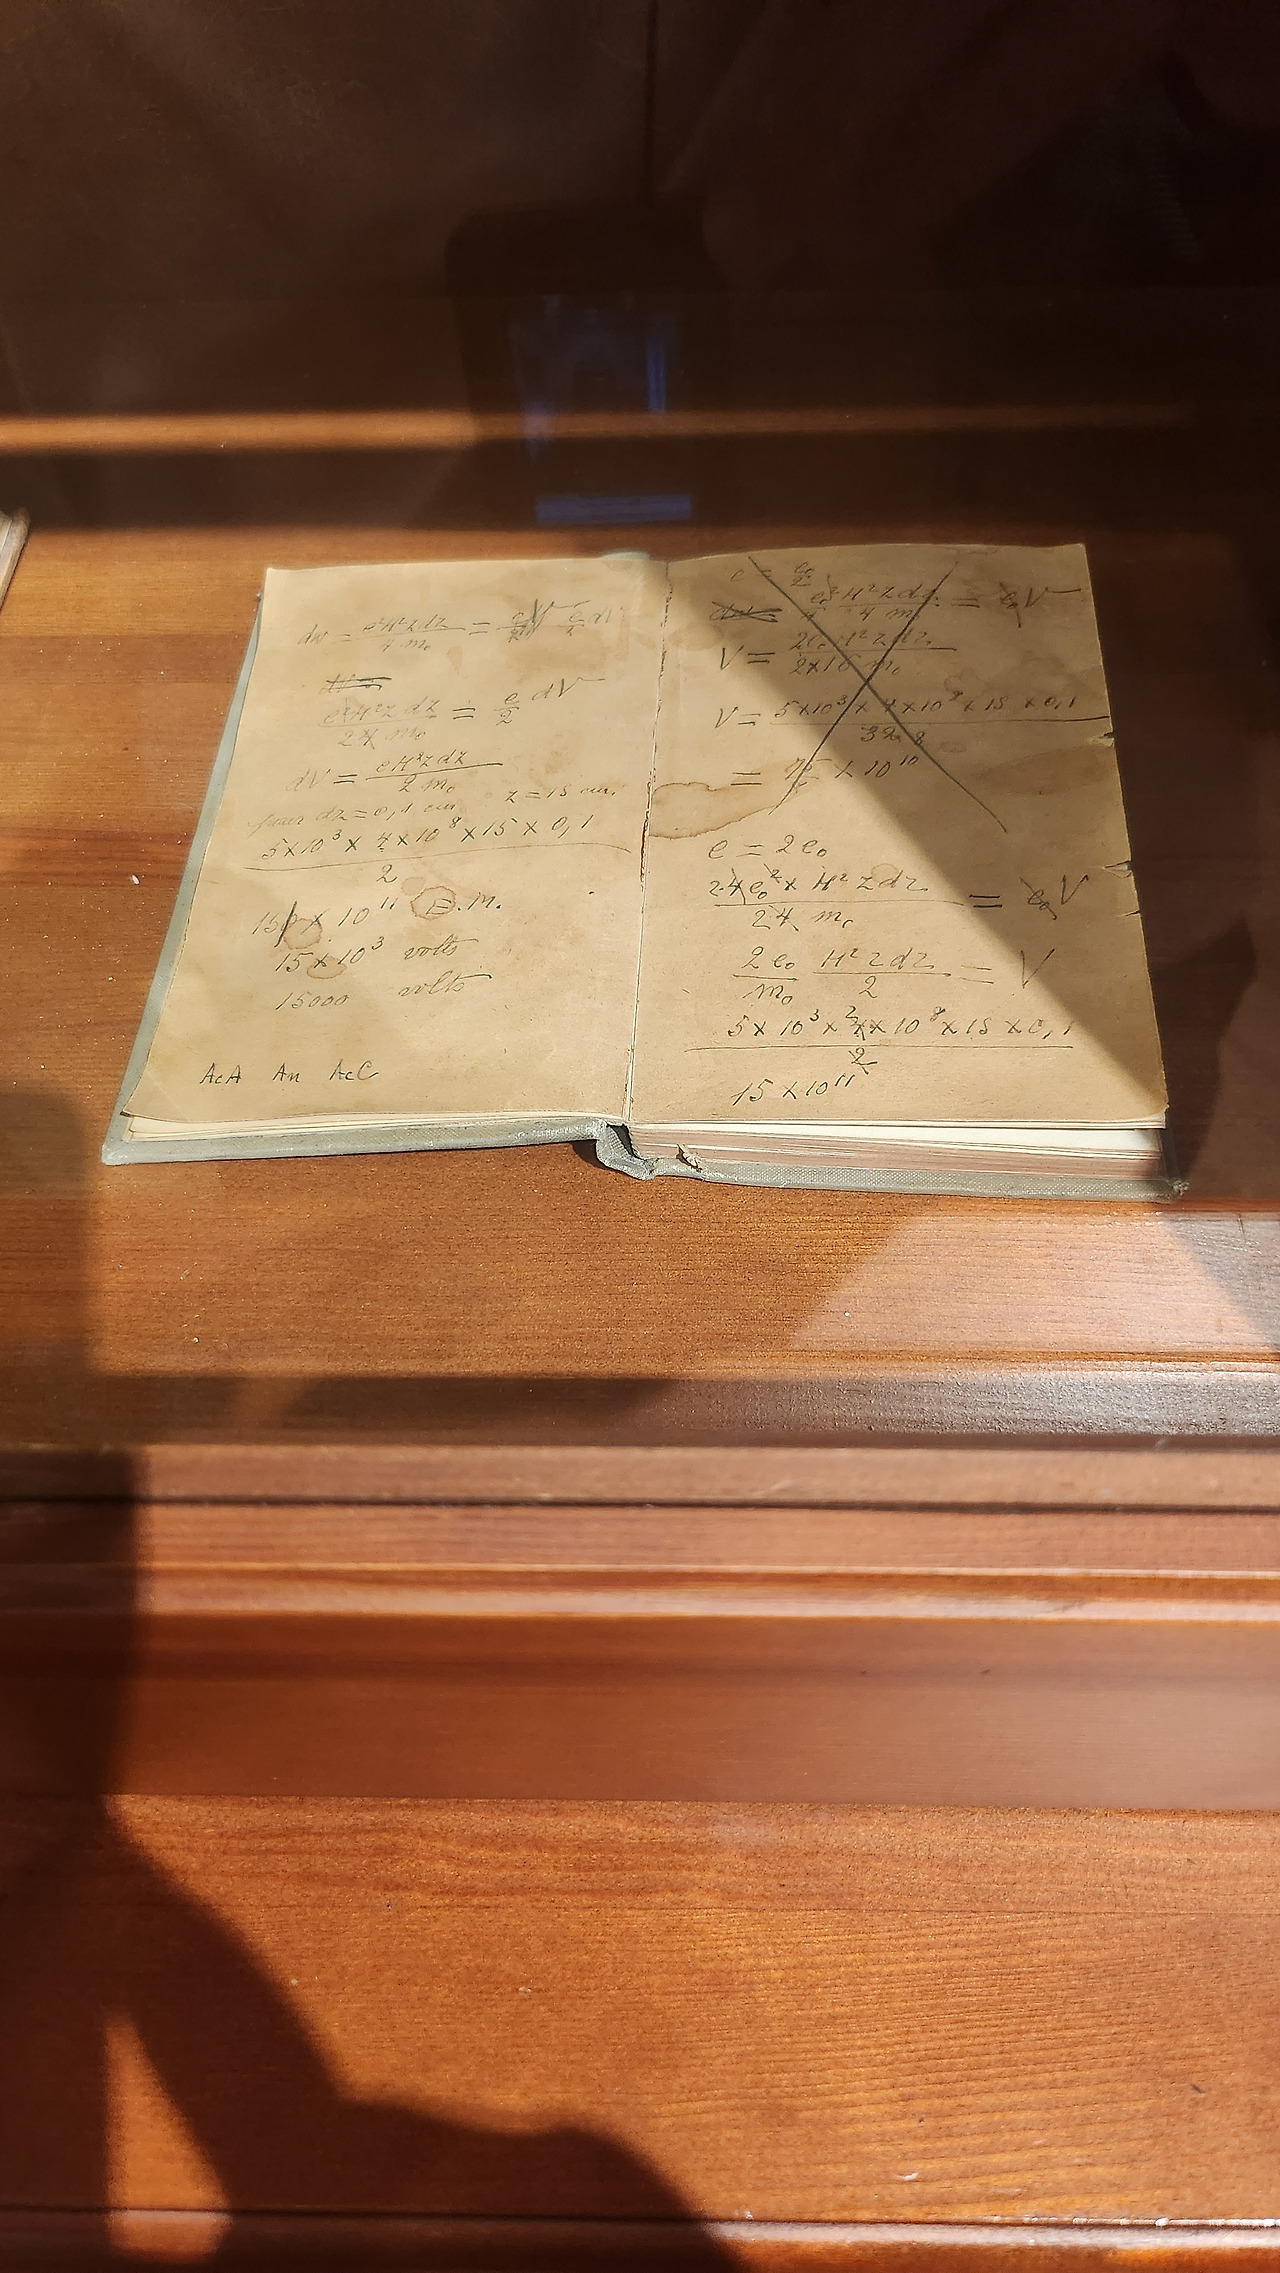 dw = e²H²z dz / 4 m₀ = e/2 dV
e²H²z dz / 24 m₀ = e/2 dV
dV = eH²z dz / 2 m₀
pour dz = 0,1 cm z = 15 cm.
5 x 10³ x 4 x 10⁸ x 15 x 0,1 / 2
150 x 10¹¹ E.M.
15 x 10³ volts
15000 volts
AcA An AcC
e = e₀/2
e₀² H²z dz / 4 4 m₀ = e₀V
V = 2e₀ H²z dz / 2x16 m₀
V = 5 x 10³ x 4 x 10⁸ x 15 x 0,1 / 32 8
= 75 x 10¹⁰
e = 2e₀
2.4e₀² x H² z dz / 24 m₀ = e₀V
2e₀/m₀ H² z dz / 2 = V
5 x 10³ x 2 4 x 10⁸ x 15 x 0,1 / 2
15 x 10¹¹